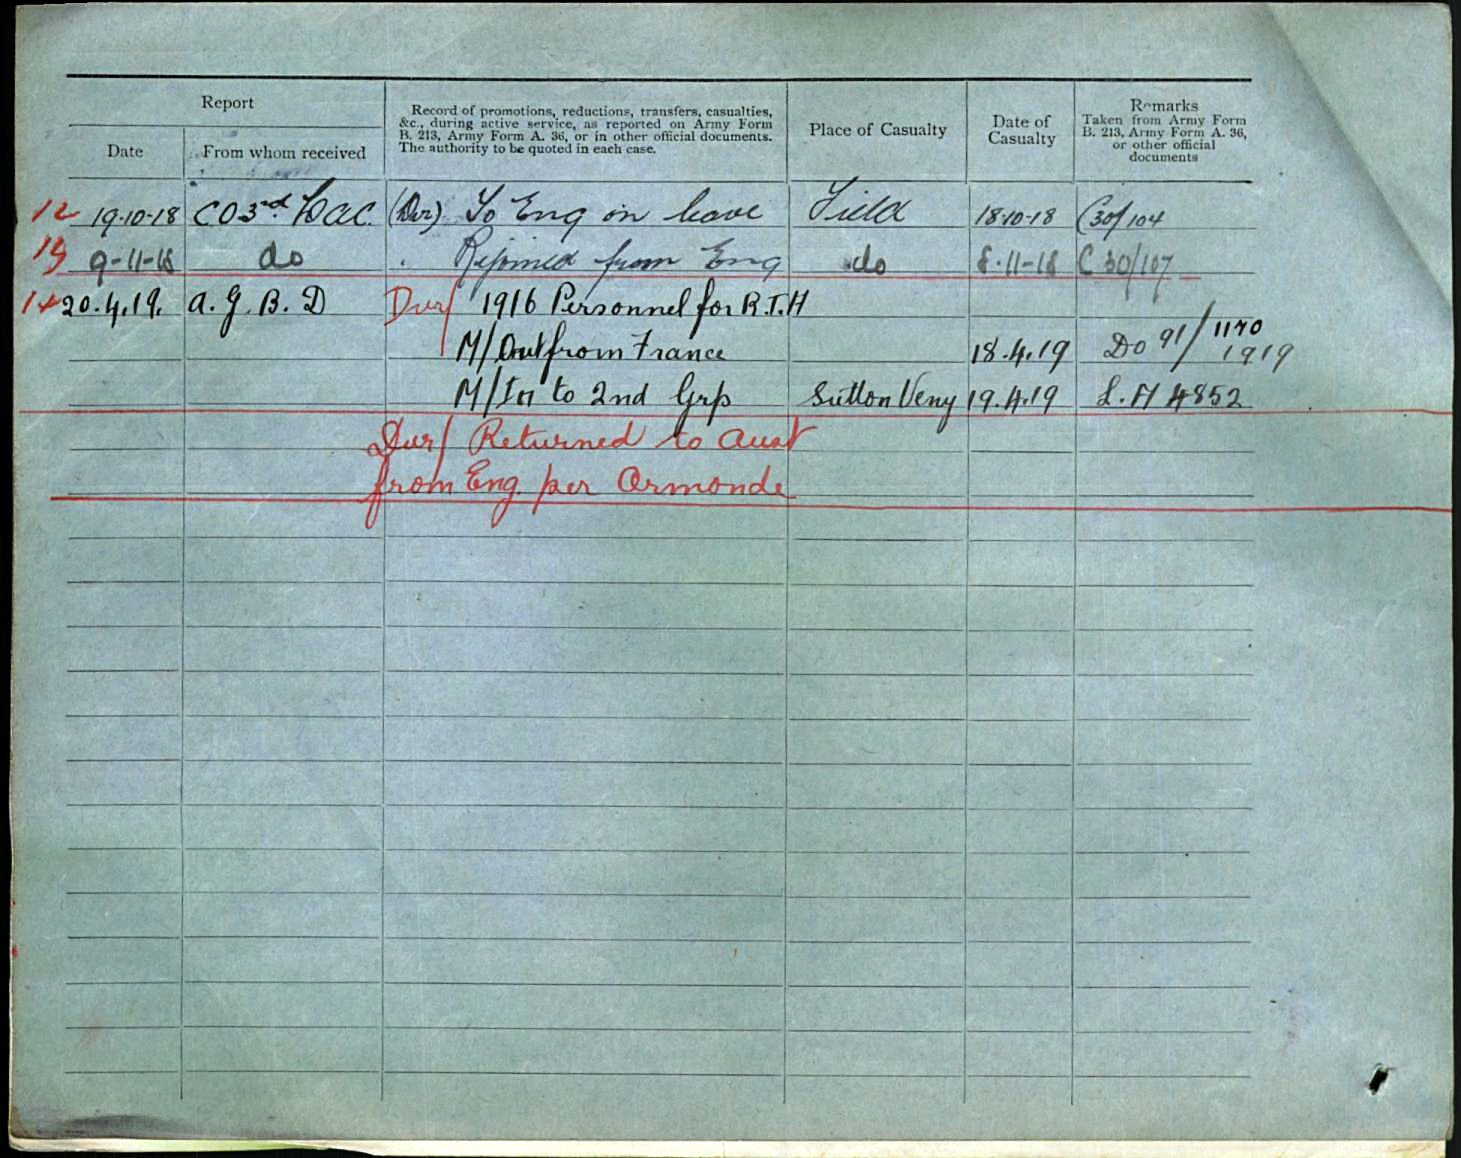 Report
Record of promotions, reductions, transfers, casualties,
&c., during active service, as reported on Army Form
B. 213, Army Form A. 36, or in other official documents.
The authority to be quoted in each case.
Place of Casualty
Date of
Casualty
Remarks
Taken from Army Form
B. 213, Army Form A. 36,
or other official
documents
Date
From whom received
12 19-10-18 CO 3rd DAC (Dvr) To Eng on leave Field 18-10-18 C30/104
13 9-11-18 do Rejoined from Eng do 8-11-18 C 30/107
14 20.4.19. A.G.B.D Dvr/ 1916 Personnel for R.T.A
M/Out from France 18.4.19 Do 91/1170
1919
M/In to 2nd Grp Sutton Veny 19.4.19 L.H 4852
Dvr/ Returned to Aust
from Eng. per Ormonde